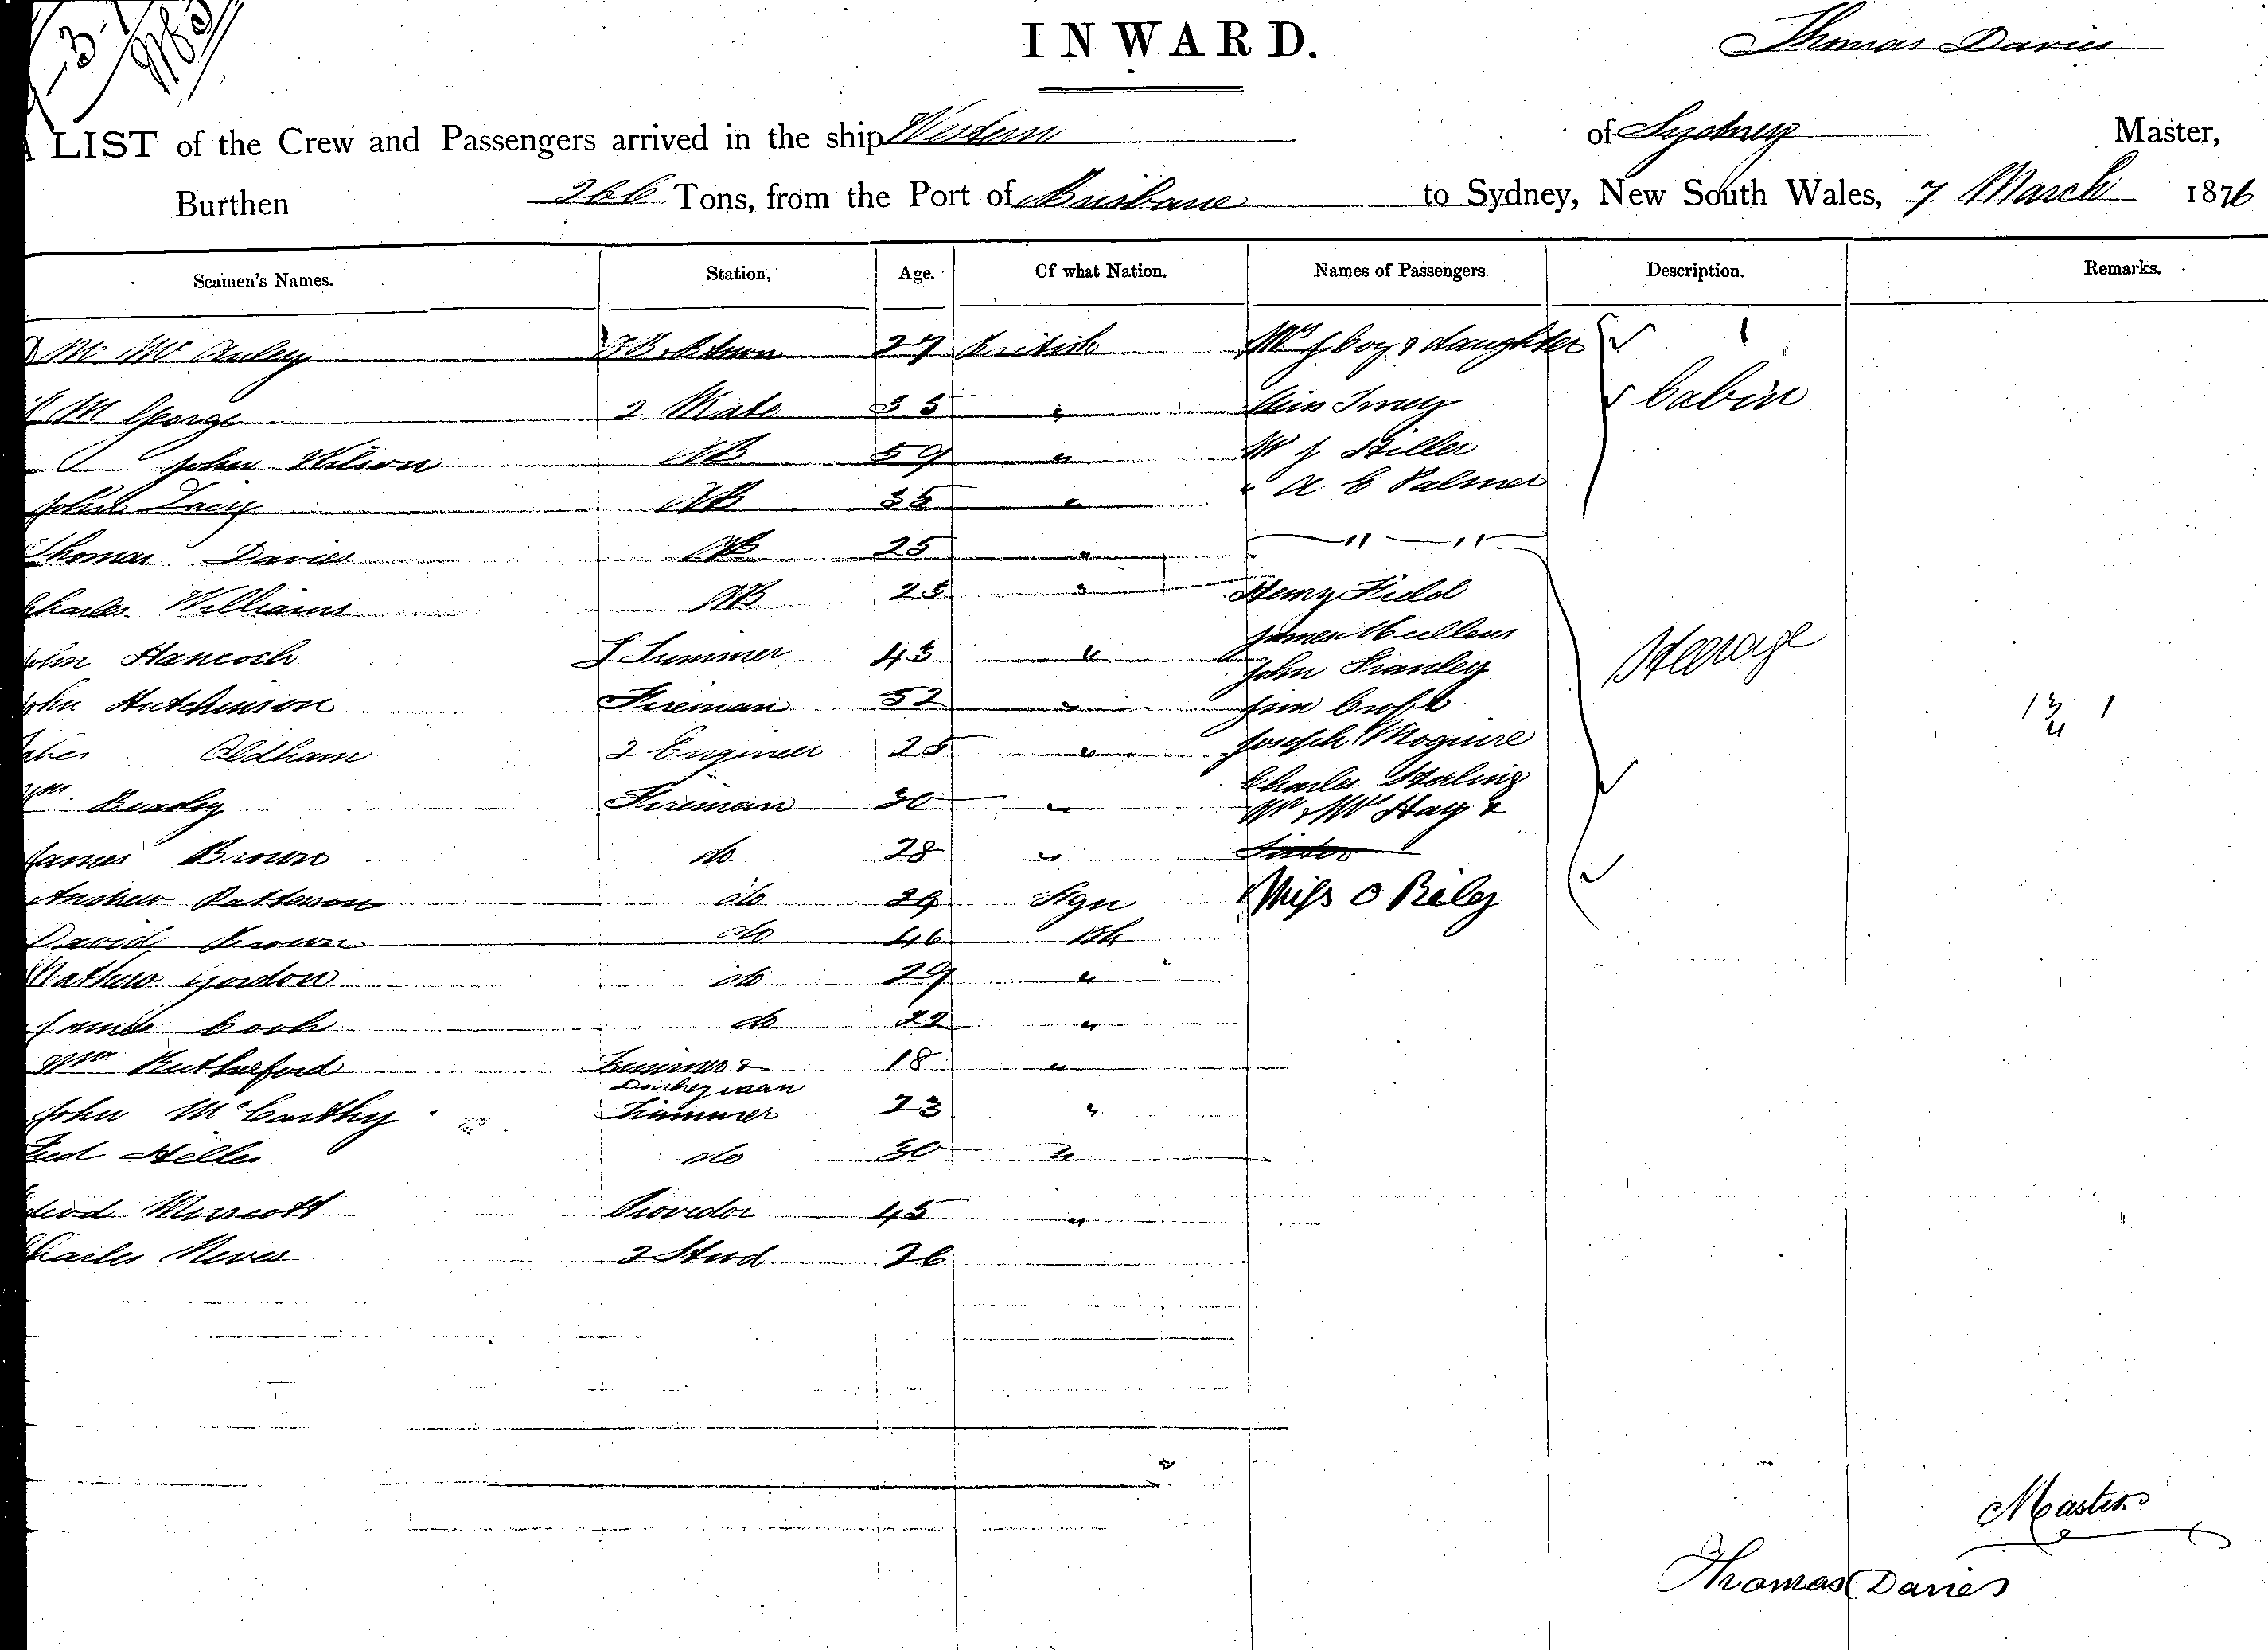 INWARD.
Thomas Davies
LIST of the Crew and Passengers arrived in the ship Western of Sydney Master,
Burthen 266 Tons, from the Port of Brisbane to Sydney, New South Wales, 7 March 1876
Seamen's Names. Station, Age. Of what Nation. Names of Passengers. Description. Remarks.
Mc Auley 27 British Mrs Joy & daughter
M George 2 Mate 35 " Miss Cabin
John Wilson AB 59 " Mr J Hiller
John Lacy AB 35 " " A C Palmer
Thomas Davies AB 25 " " "
Charles Williams AB 23 " Henry Kidd
James Mullens
John Hancock 43 " John Stanley Steerage
John Hutchinson Fireman 52 " Jim Croft 13 1
Oldham 2 Engineer 25 " Joseph Moguire
Charles Sterling
Wm Beasley Fireman 30 " Hay &
James Brown do 28 "
Andrew Patterson do 29 Miss O Riley
David Brown do 46
Mathew Gordon do 29 "
James Cook do 22 "
Wm Rutherford Trimmer & 18 "
Donkeyman
John McCarthy Trimmer 23 "
Fred Heller do 30 "
Provedor 45 "
Charles Neves 2 Stwd 26
Master
Thomas Davies